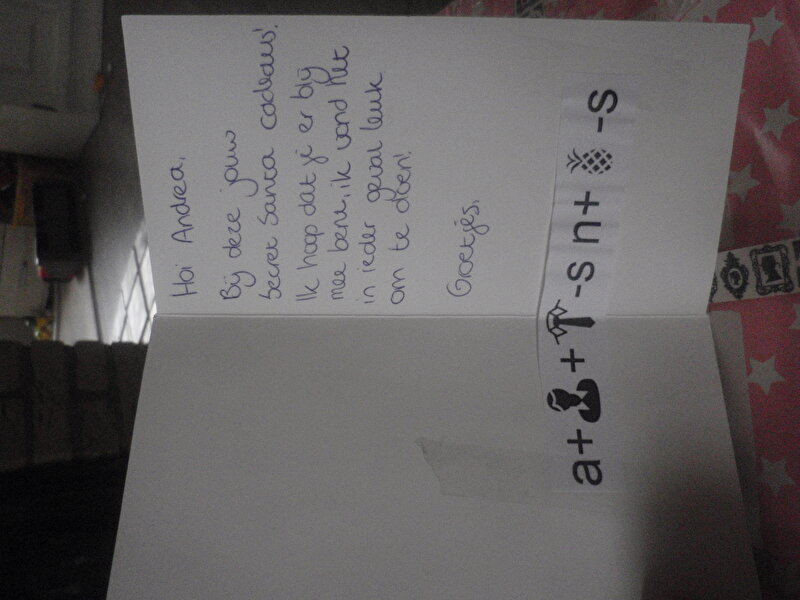 Hoi Andrea,
Bij deze jouw
Secret Santa cadeaus!
Ik hoop dat je er blij
mee bent, ik vond het
in ieder geval leuk
om te doen!
Groetjes,
a+ + -s n+ -s